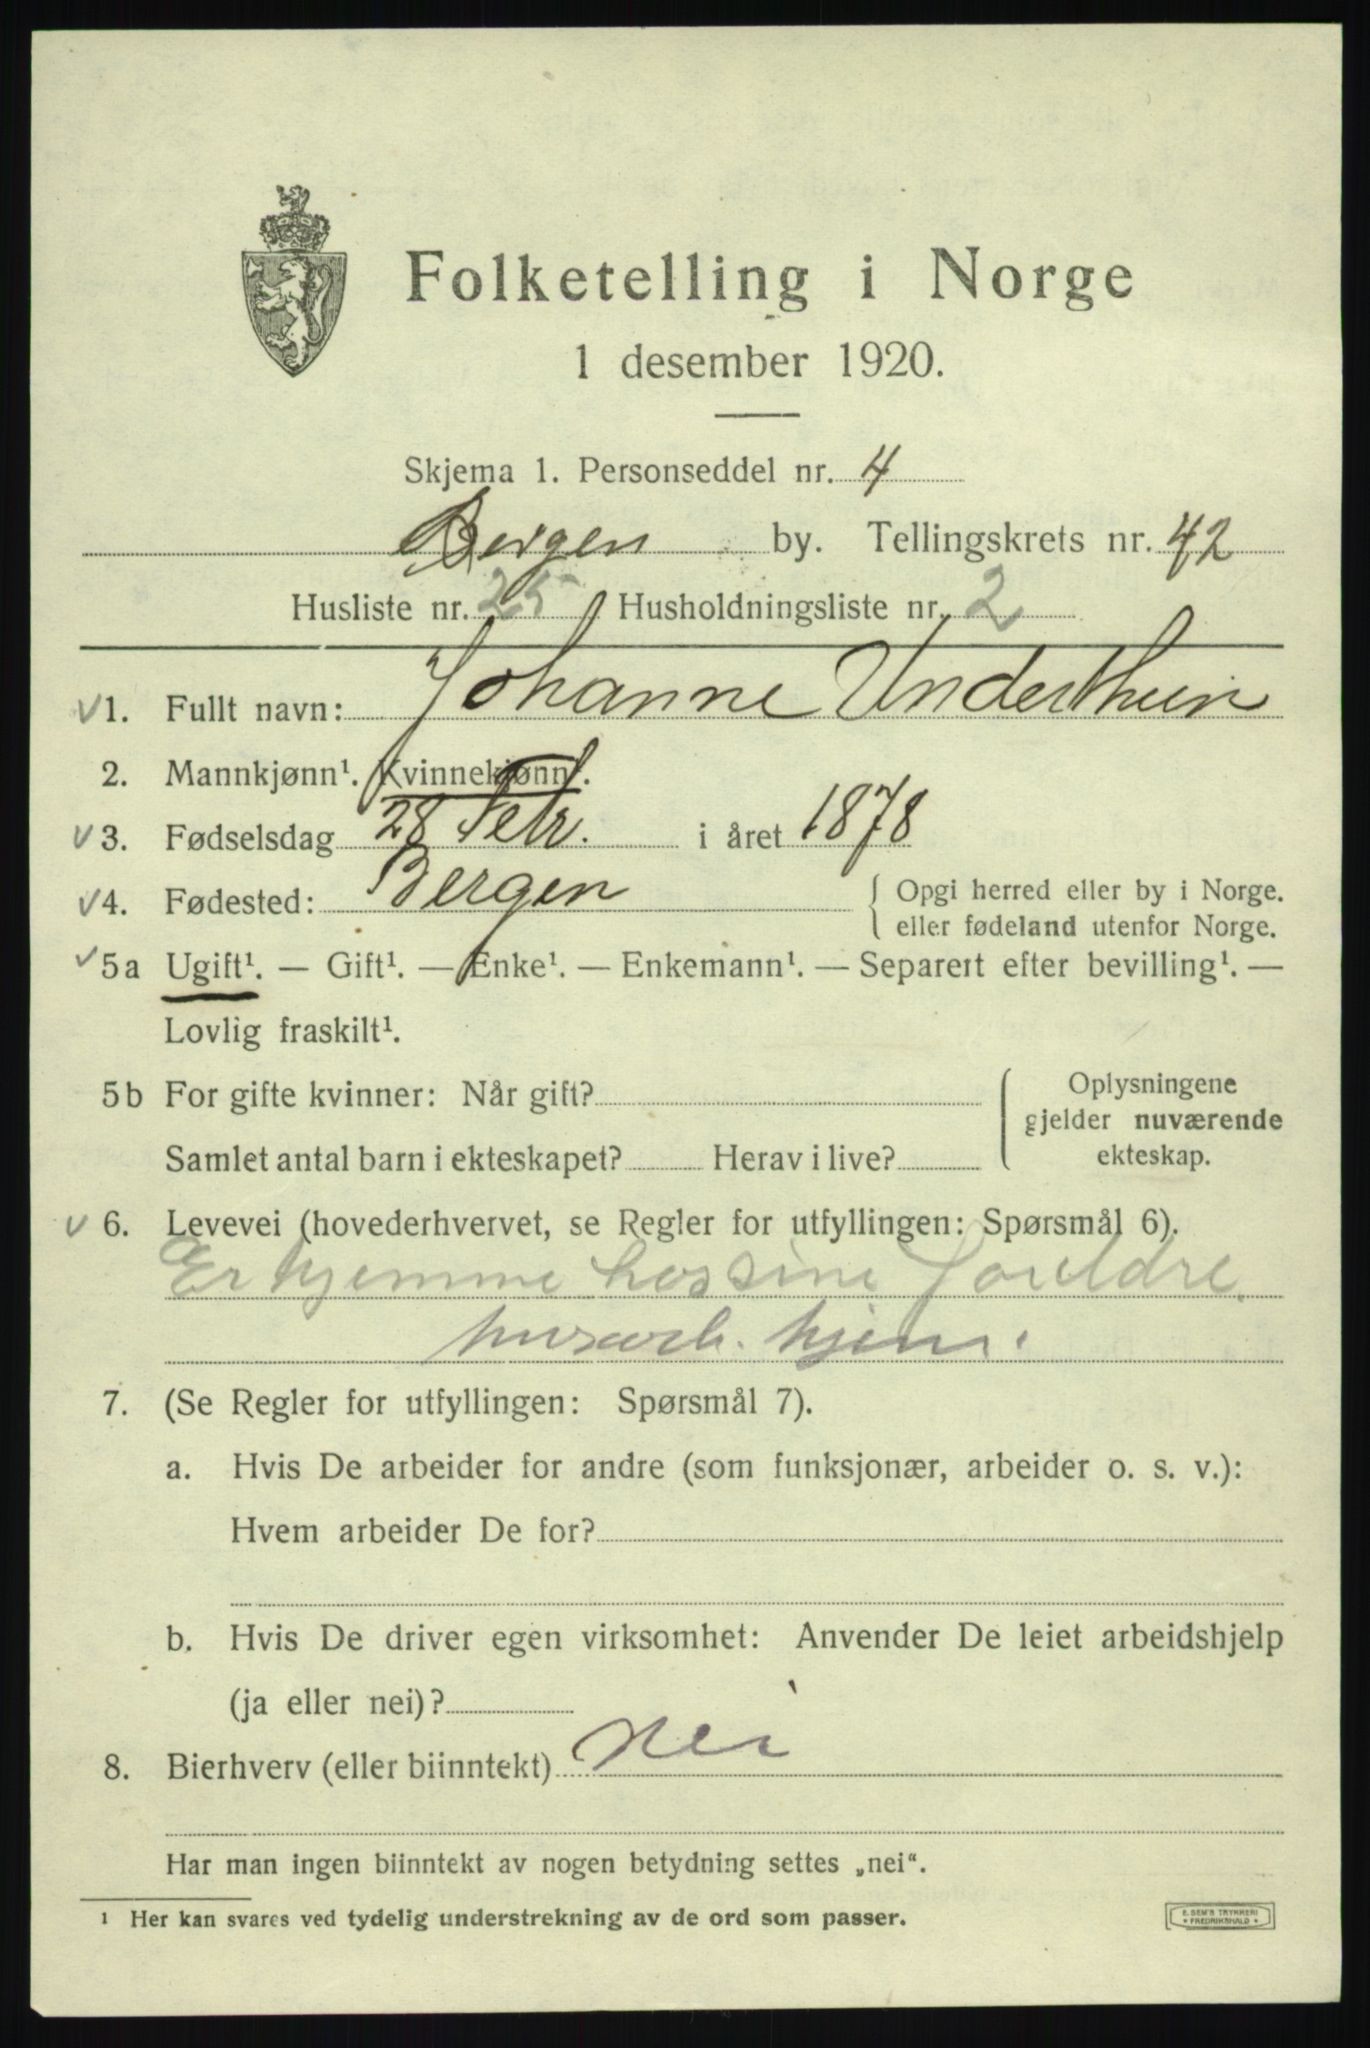 Folketelling i Norge
1 desember 1920.
Skjema 1. Personseddel nr. 4
Bergen by. Tellingskrets nr. 42
Husliste nr. 25 Husholdningsliste nr. 2
v 1. Fullt navn: Johanne Underthun
2. Mannkjønn¹. Kvinnekjønn¹.
v 3. Fødselsdag 28 Febr. i året 1878
v 4. Fødested: Bergen { Opgi herred eller by i Norge.
{ eller fødeland utenfor Norge.
v 5a Ugift¹. — Gift¹. — Enke¹. — Enkemann¹. — Separert efter bevilling¹. —
Lovlig fraskilt¹.
5b For gifte kvinner: Når gift? Oplysningene
gjelder nuværende
Samlet antal barn i ekteskapet? Herav i live? ekteskap.
v 6. Levevei (hovederhvervet, se Regler for utfyllingen: Spørsmål 6).
Er hjemme hos sine Foreldre.
husarb. hjem.
7. (Se Regler for utfyllingen: Spørsmål 7).
a. Hvis De arbeider for andre (som funksjonær, arbeider o. s. v.):
Hvem arbeider De for?
b. Hvis De driver egen virksomhet: Anvender De leiet arbeidshjelp
(ja eller nei)?
8. Bierhverv (eller biinntekt) nei
Har man ingen biinntekt av nogen betydning settes „nei“.
¹ Her kan svares ved tydelig understrekning av de ord som passer.
E. SEM'S TRYKKERI
* FREDRIKSHALD *